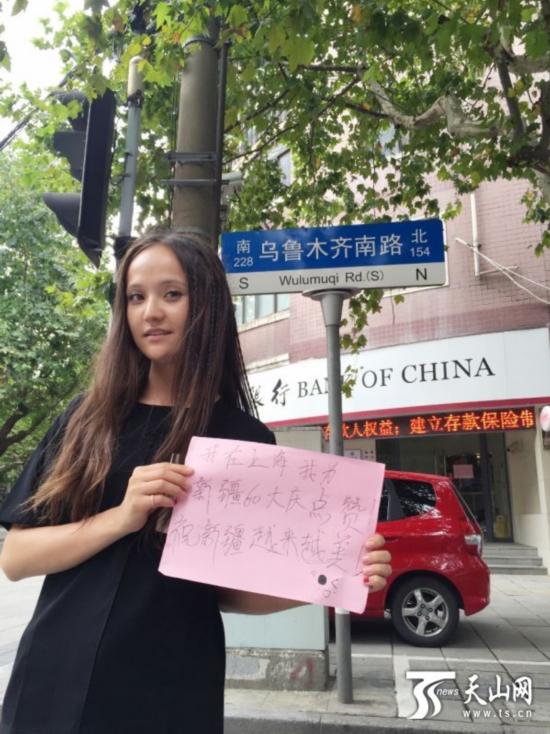 南 乌鲁木齐南路 北
228 154
S Wulumuqi Rd.(S) N
银行 BANK OF CHINA
存款人权益；建立存款保险制
我在上海 我为
新疆60大庆点赞
祝新疆越来越美
TS news 天山网
www.ts.cn